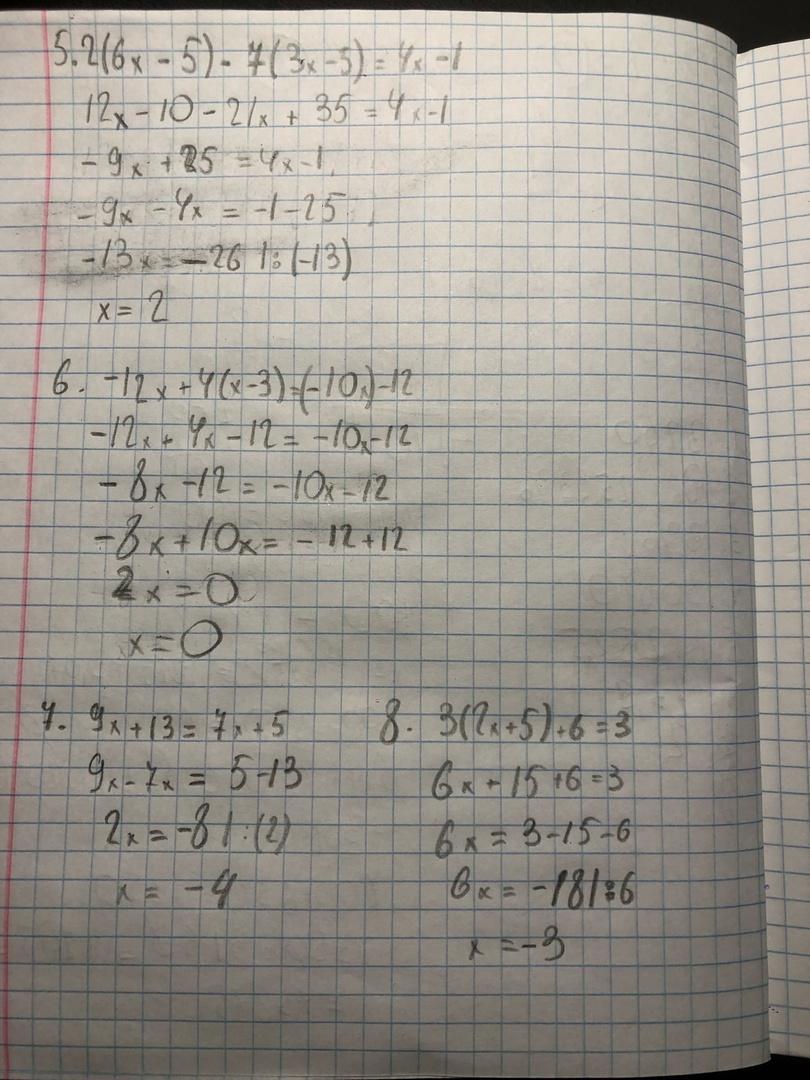 5. 2(6x - 5) - 7(3x - 5) = 4x - 1
12x - 10 - 21x + 35 = 4x - 1
- 9x + 25 = 4x - 1
- 9x - 4x = -1 - 25
-13x = -26 |: (-13)
x = 2
6. -12x + 4(x - 3) = (-10x) - 12
-12x + 4x - 12 = -10x - 12
- 8x - 12 = -10x - 12
- 8x + 10x = - 12 + 12
2x = 0
x = 0
7. 9x + 13 = 7x + 5
9x - 7x = 5 - 13
2x = -8 | : (2)
x = -4
8. 3(2x + 5) + 6 = 3
6x + 15 + 6 = 3
6x = 3 - 15 - 6
6x = -18 |: 6
x = -3